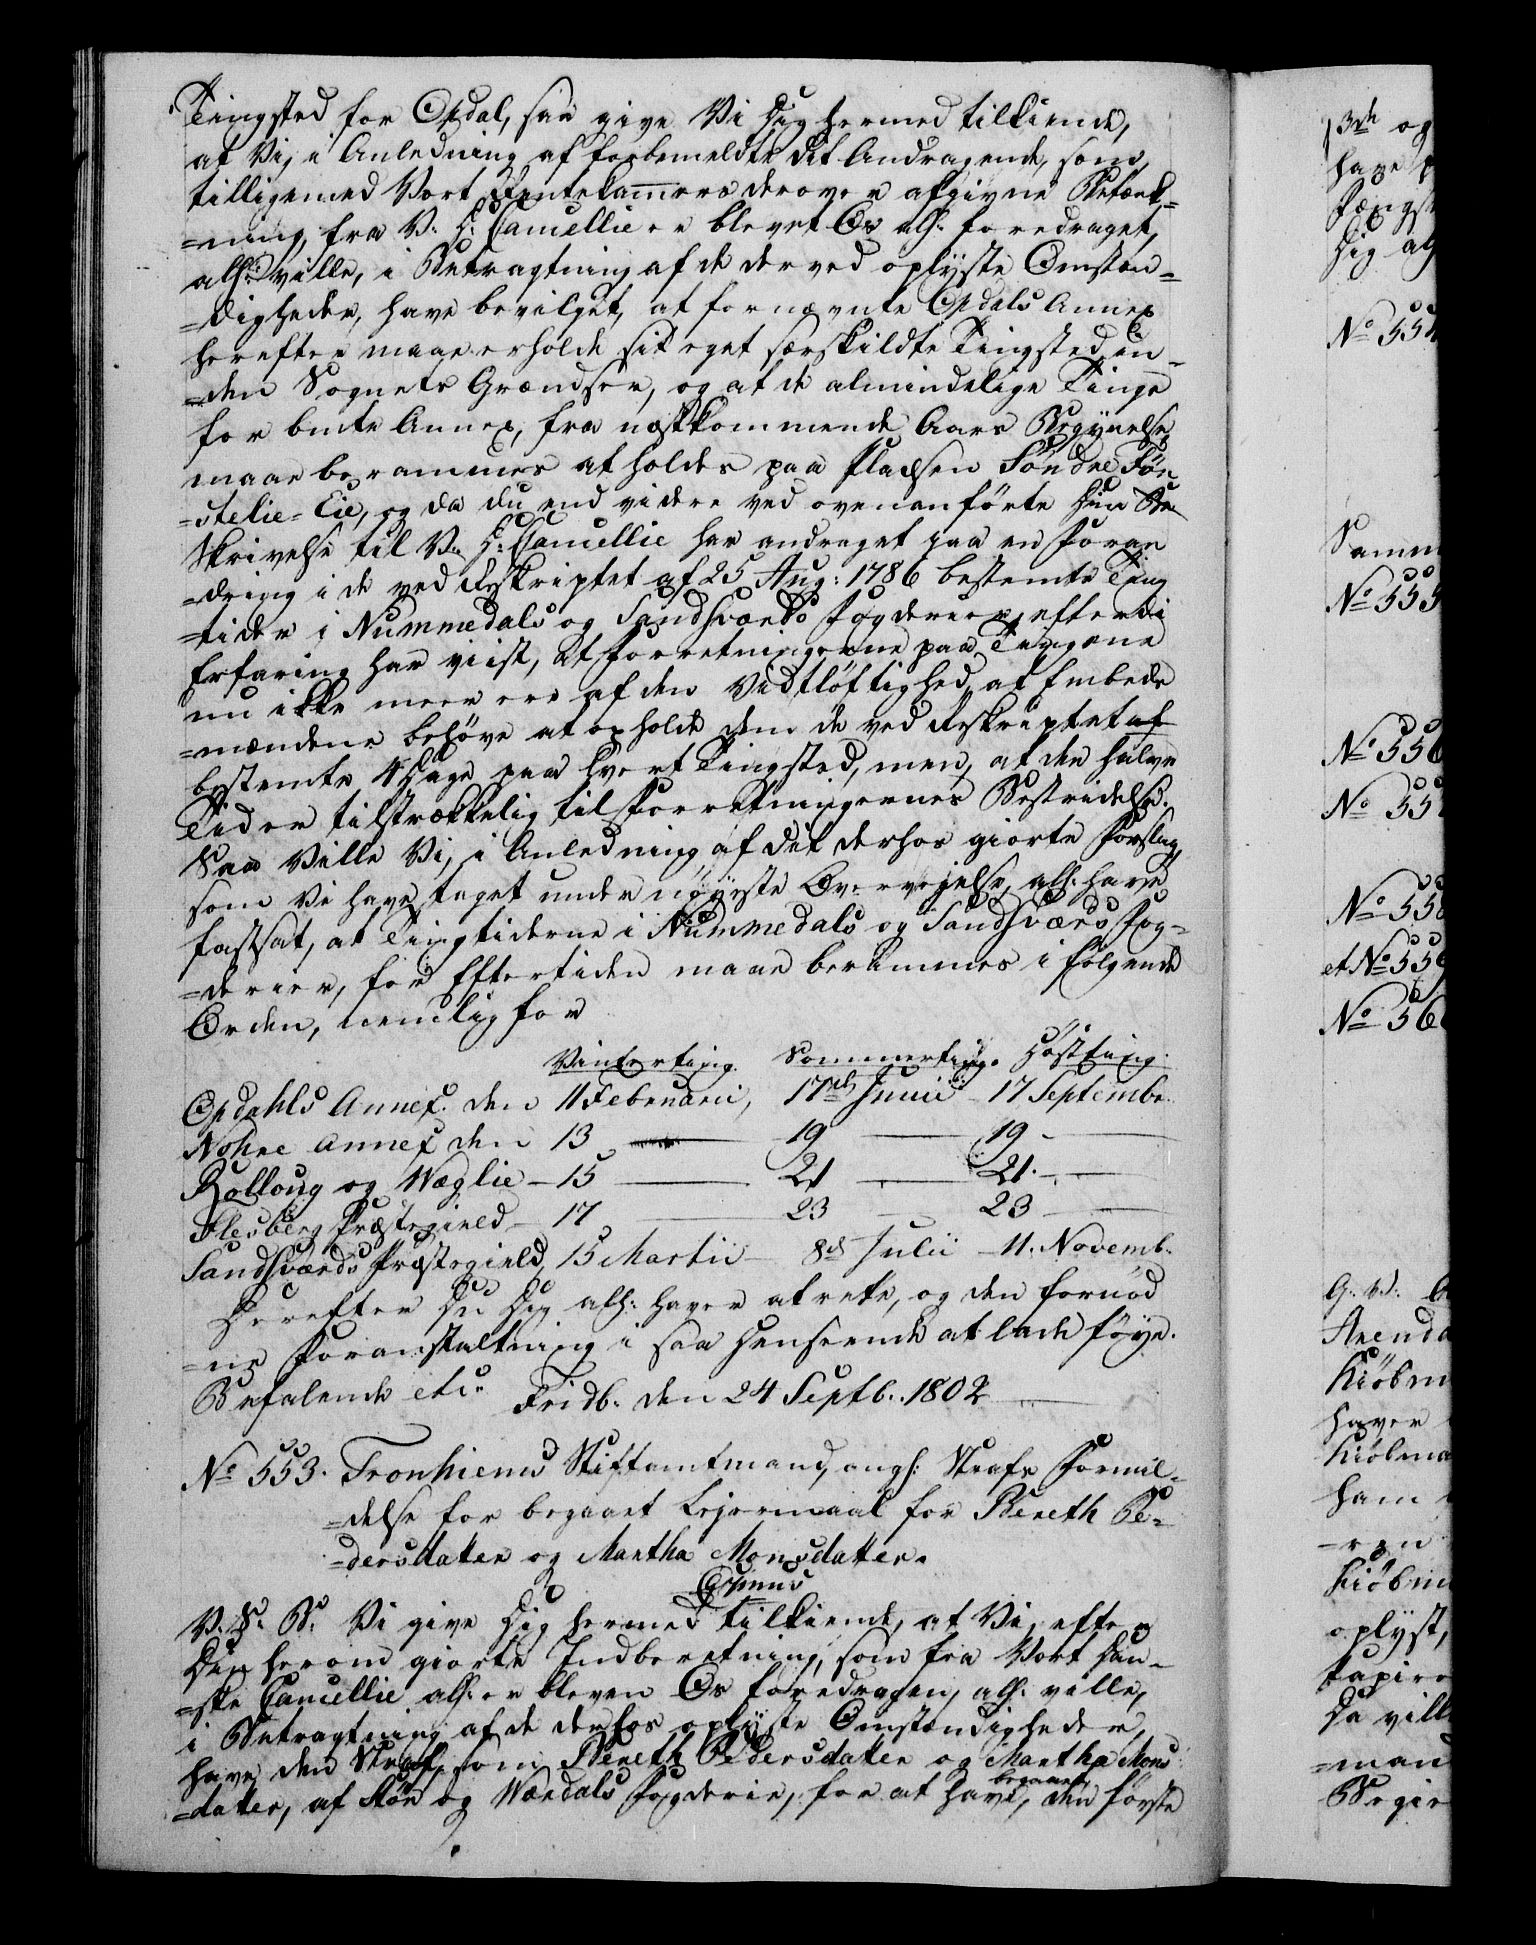 Tingsted for Opdal, saa give Vi Dig hermed tilkiende,
at Vi, i Anledning af forbemeldte dit Andragende, som,
tilligemed Vort Rentekamers derover afgivne Betænk-
=ning, fra V. D. Cancellie er blevet Os allh: foredraget,
allh: ville, i Betragtning af de derved oplyste Omstæn-
=digheder, have bevilget, at fornævnte Opdals Annex
herefter maae erholde sit eget særskildte Tingsted in-
=den Sognets Grændser, og at de almindelige Tinge
for bmte Annex, fra næstkommende Aars Begynelse,
maae berammes at holdes paa Pladsen Söndre Fön-
=stelie=Eie, og da du end videre ved ovenanførte Din
Skrivelse til V. D: Cancellie har andraget paa en Foran
=dring i de ved Reskriptet af 25 Aug: 1786 bestemte Ting
=tider i Nummedals og Sandsværds Fogderier, efterdi
Erfaring har viist, at Forretningerne paa Tingene
nu ikke meer ere af den Vidtløftighed, at Embeds
=mændene behøve at opholde dem de ved Reskriptet af
bestemte 4 Dage paa hvert Tingsted, men, at den halve
Tid er tilstrækkelig til Forretningernes Bestridelse.
Saa Ville Vi, i Anledning af det derhos giorte Forslag,
som Vi have taget under nøyeste Overveielse, allh: have
fastsat, at Tingtiderne i Nummedals og Sandsværds Fog-
=derier, for Eftertiden maae berammes i følgende
Orden, nemlig for
Vinterting. Sommerting. Høstting.
Opdahls Annex. den 11 Februarii, 17de Junii 17 Septembr.
Nohre Annex den 13 — 19 — 19 —
Rolloug og Wæglie — 15 — 21 — 21. —
Flesberg Præstegield — 17 — 23 — 23 —
Sandsværds Præstegield, 15 Martii — 8de Julii — 11. Novemb.
Derefter Du Dig allh: haver at rette, og den fornød
=ne Foranstaltning i saa Henseende at lade føye.
Befalende etc. Fridb. den 24 Septb. 1802
No 553. Tronhiems Stiftamtmand, angl: Strafs Formil-
=delse for begaaet Leiermaal for Bereth Pe-
=dersdatter og Martha Monsdatter.
Copmus
V. S. B. Vi give Dig hermed tilkiende, at Vi, efter
Din herom giorte Indberetning, som fra Vort Dan-
=ske Cancellie allh: er bleven Os foredragen, allh: ville,
i Betragtning af de derhos oplyste Omstændigheder,
have den Straf, som Bereth Pedersdatter og Martha Mons
=datter, af Stör og Værdals Fogderie, for at have begaaet, den første
13de og
have
Dig
No 554
Samm
No 555
No 556
No 557
No 558
et No 559
No 560
Arenda
Kiöbm
haver
Kiöbma
ham
Kiöbm
oplyst,
Da vill
=mand